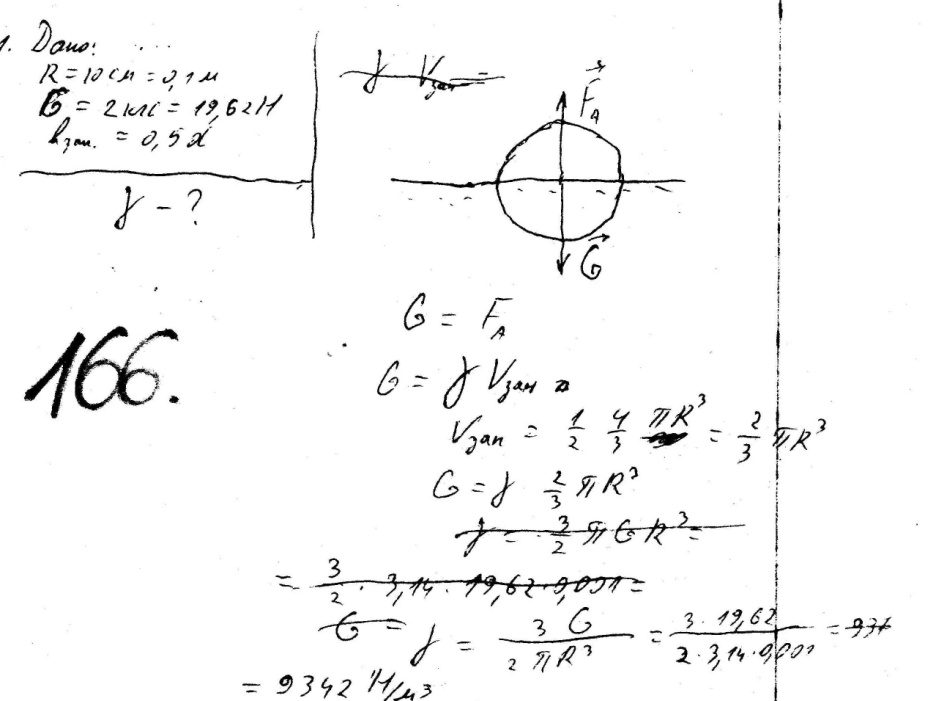 1. Дано: ...
R = 10 см = 0,1 м
G = 2 кгс = 19,62 Н
hзап. = 0,5 d
γ - ?
γ Vзап =
F⃗A
G⃗
166.
G = FA
G = γ Vзап =
Vзап = 1/2 4/3 πR³ = 2/3 πR³
G = γ 2/3 πR³
γ = 3/2 π G R³ =
= 3/2 · 3,14 · 19,62 · 0,001 =
G =
γ = 3 G / 2 πR³ = 3 · 19,62 / 2 · 3,14 · 0,001 = 937
= 9342 Н/м³